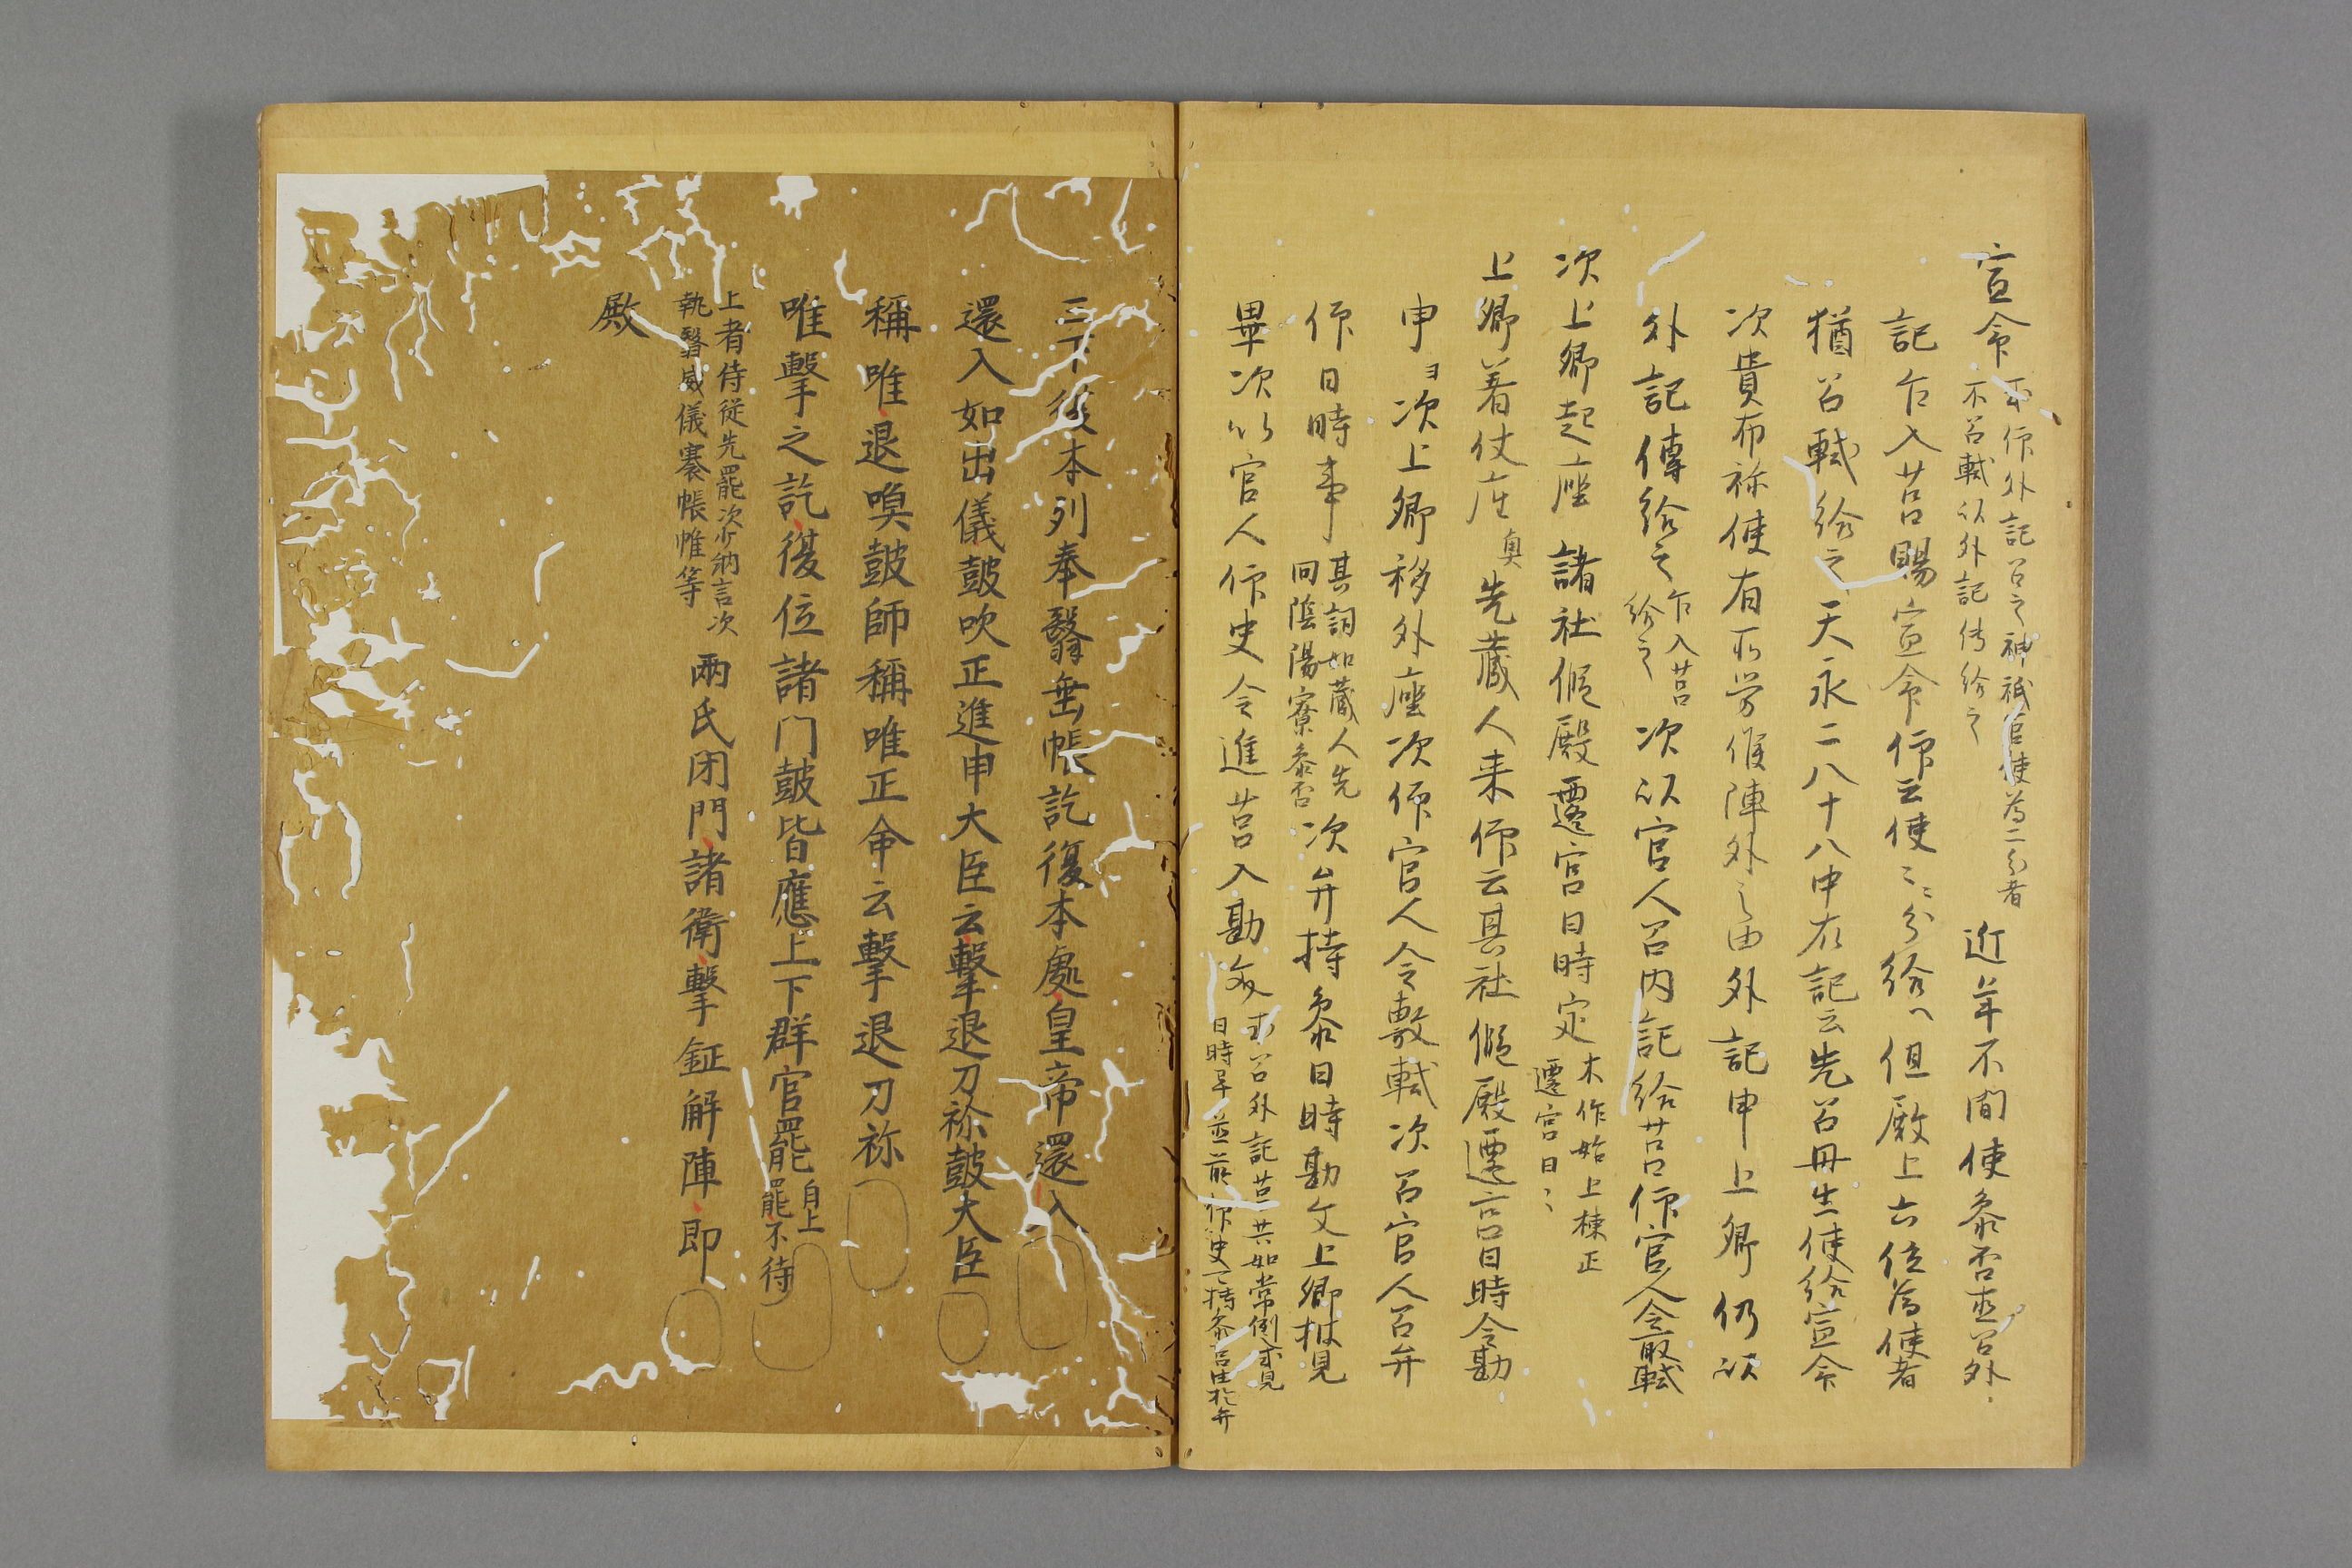 宣命 或仰外記召之神祇官使為二分者
不召軾以外記傳給之 近年不問使参否直召外
記乍入筥賜宣命仰云使ニ分給ヘ但殿上六位為使者
猶召軾給之天永二八十八中右記云先召丹生使給宣命
次貴布祢使有所労候陣外之由外記申上卿仍以
外記傳給之 乍入筥
給之 次以官人召内記給筥仰官人令取軾
次上卿起座 諸社假殿遷宮日時定 木作始上棟正
遷宮日〻
上卿着仗座 奥 先蔵人来仰云其社假殿遷宮日時令勘
申ヨ次上卿移外座次仰官人令敷軾次召官人召弁
仰日時事 其詞如蔵人先
同陰陽寮参否 次弁持参日時勘文上卿披見
畢次以官人仰史令進筥入勘文 或召外記筥其如常例或見
日時早並前仰史
三下後本列奉翳垂帳訖復本處皇帝還入
還入如出儀鼓吹正進申大臣云撃退刀祢鼓大臣
稱唯退喚鼓師稱唯正命云撃退刀祢
唯撃之訖復位諸门鼓皆應上下群官罷 自上
罷不待
上者侍従先罷次少納言次
執翳威儀褰帳帷等 兩氏閇門諸衛撃鉦解陣即
殿